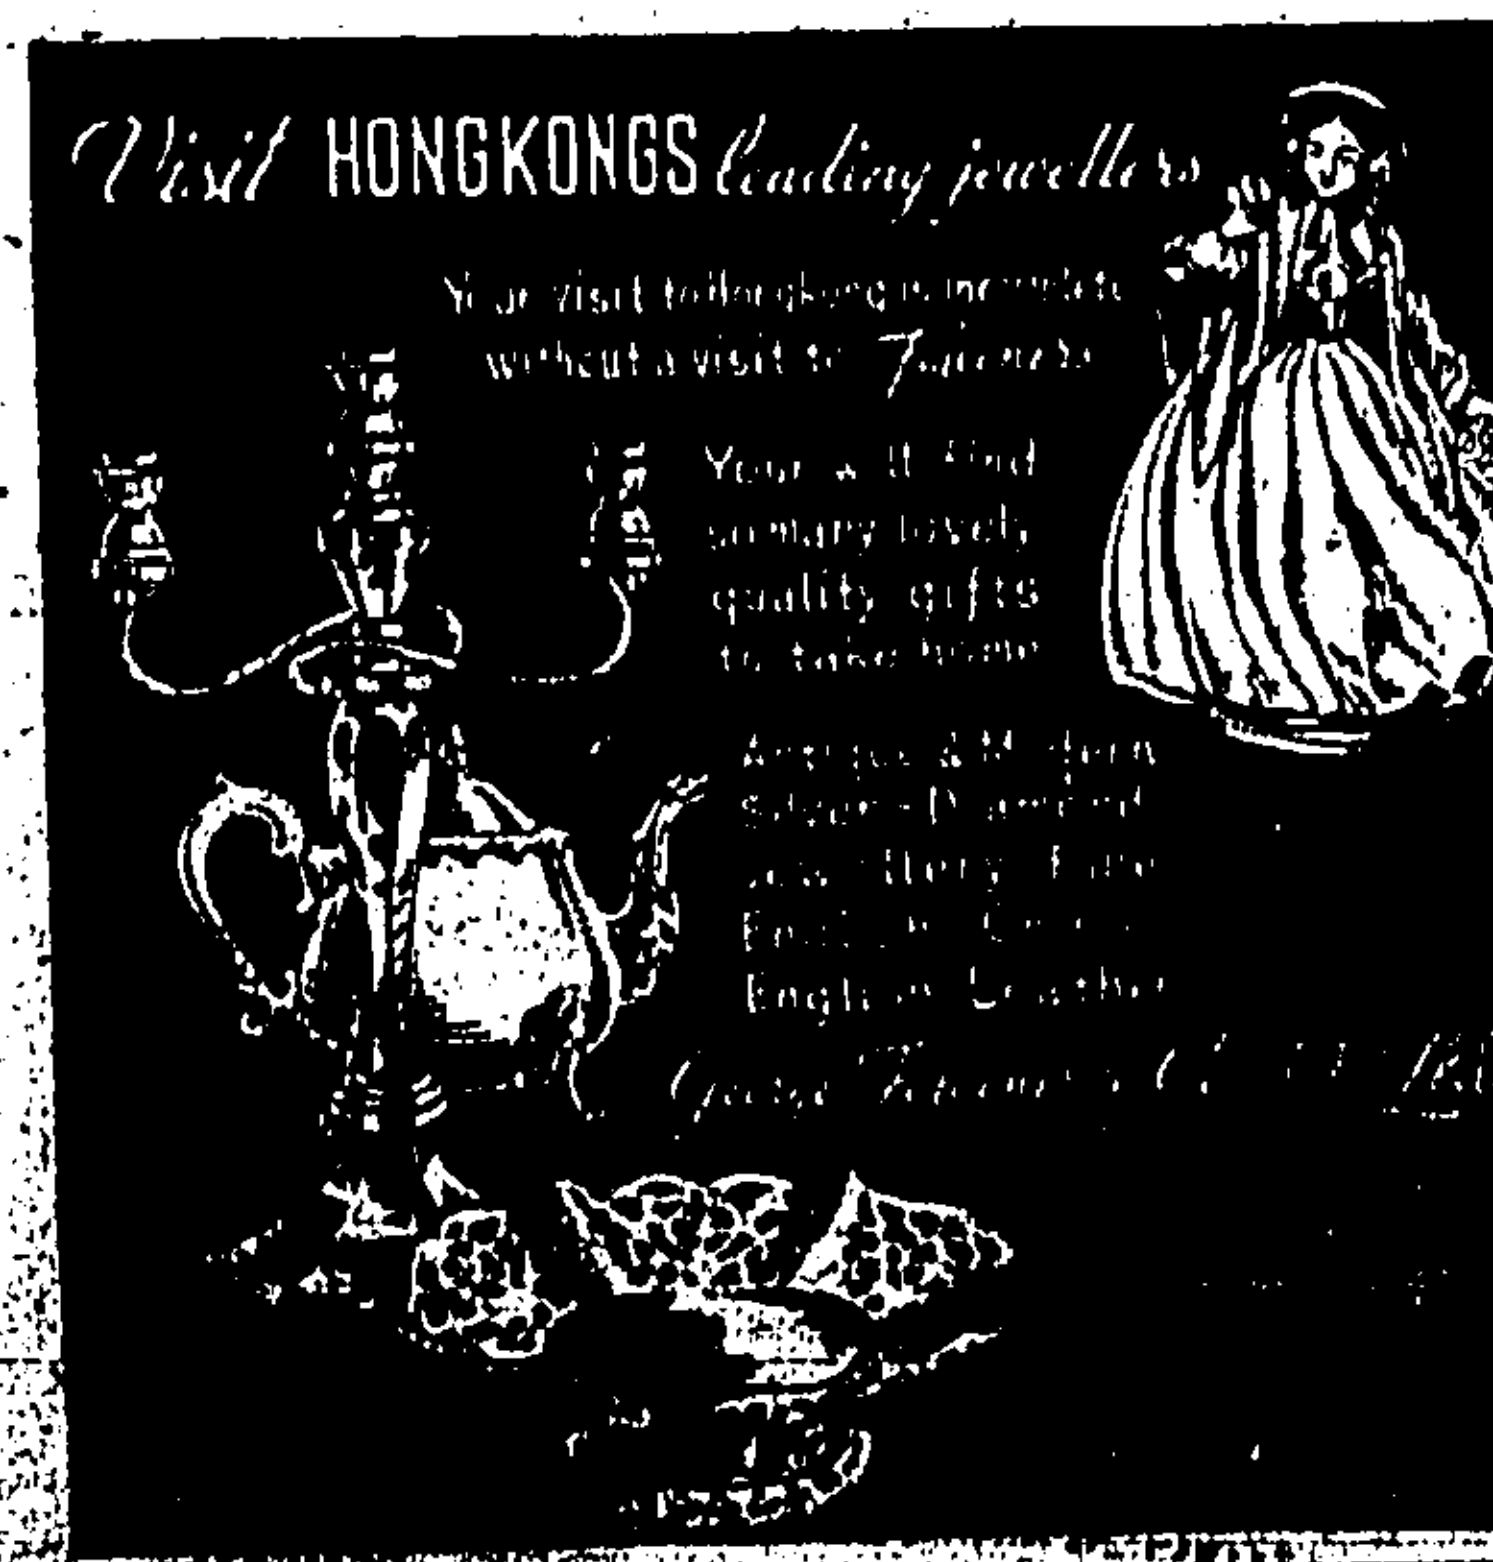 Visit HONGKONGS leading jewellers
Your visit to Hongkong is incomplete
without a visit to Falconers
Your will find
so many lovely
quality gifts
to take home
Antique & Modern
Silver - Diamond
Jewellery Fine
English
English Leather
George Falconer &